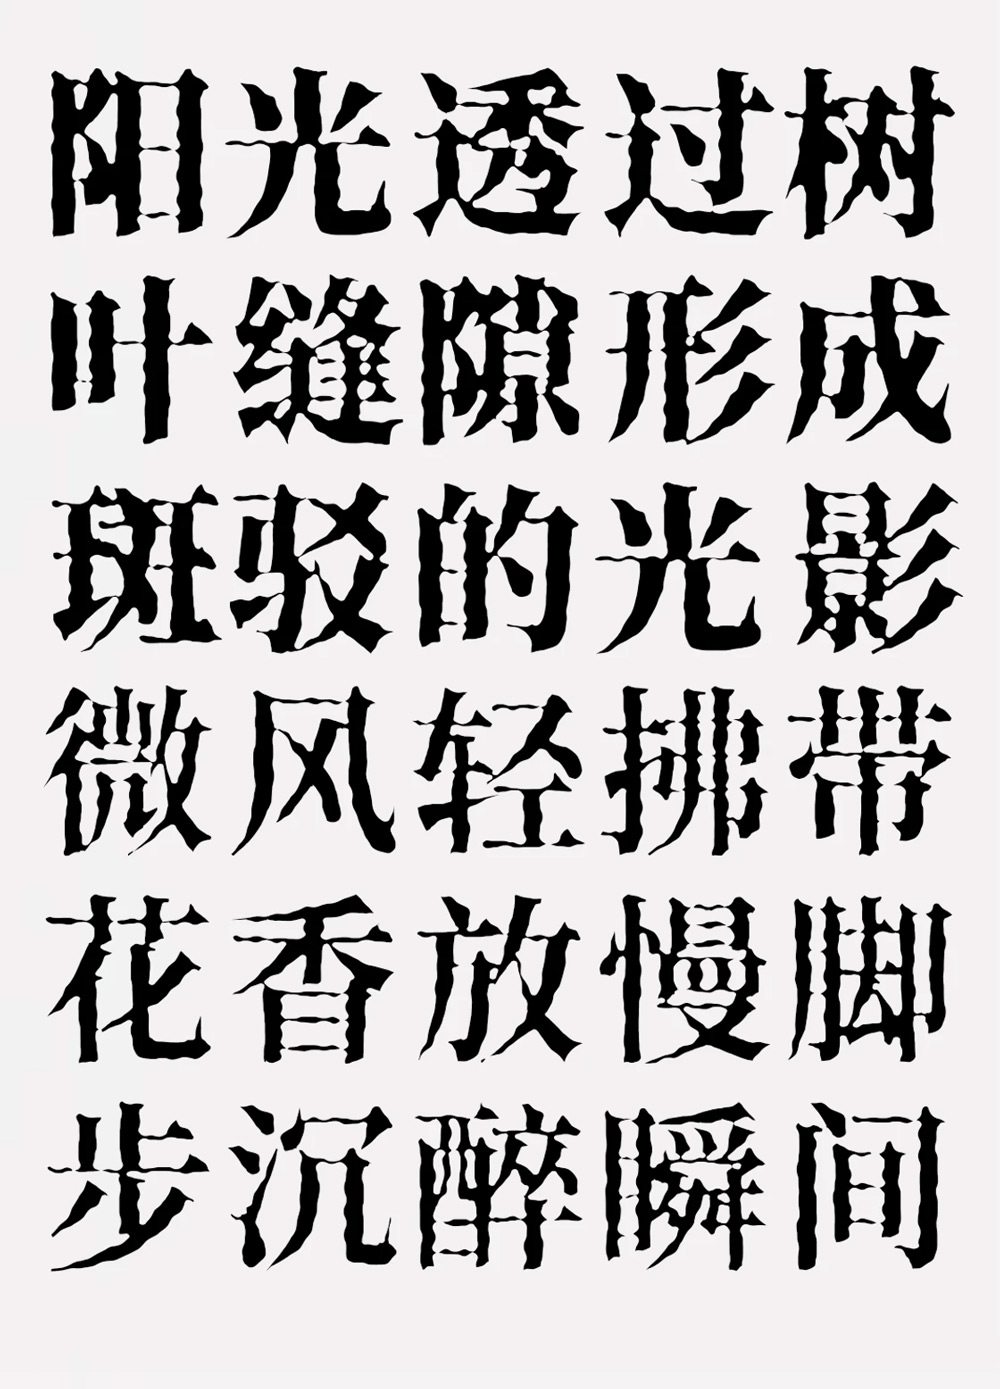 阳光透过树
叶缝隙形成
斑驳的光影
微风轻拂带
花香放慢脚
步沉醉瞬间